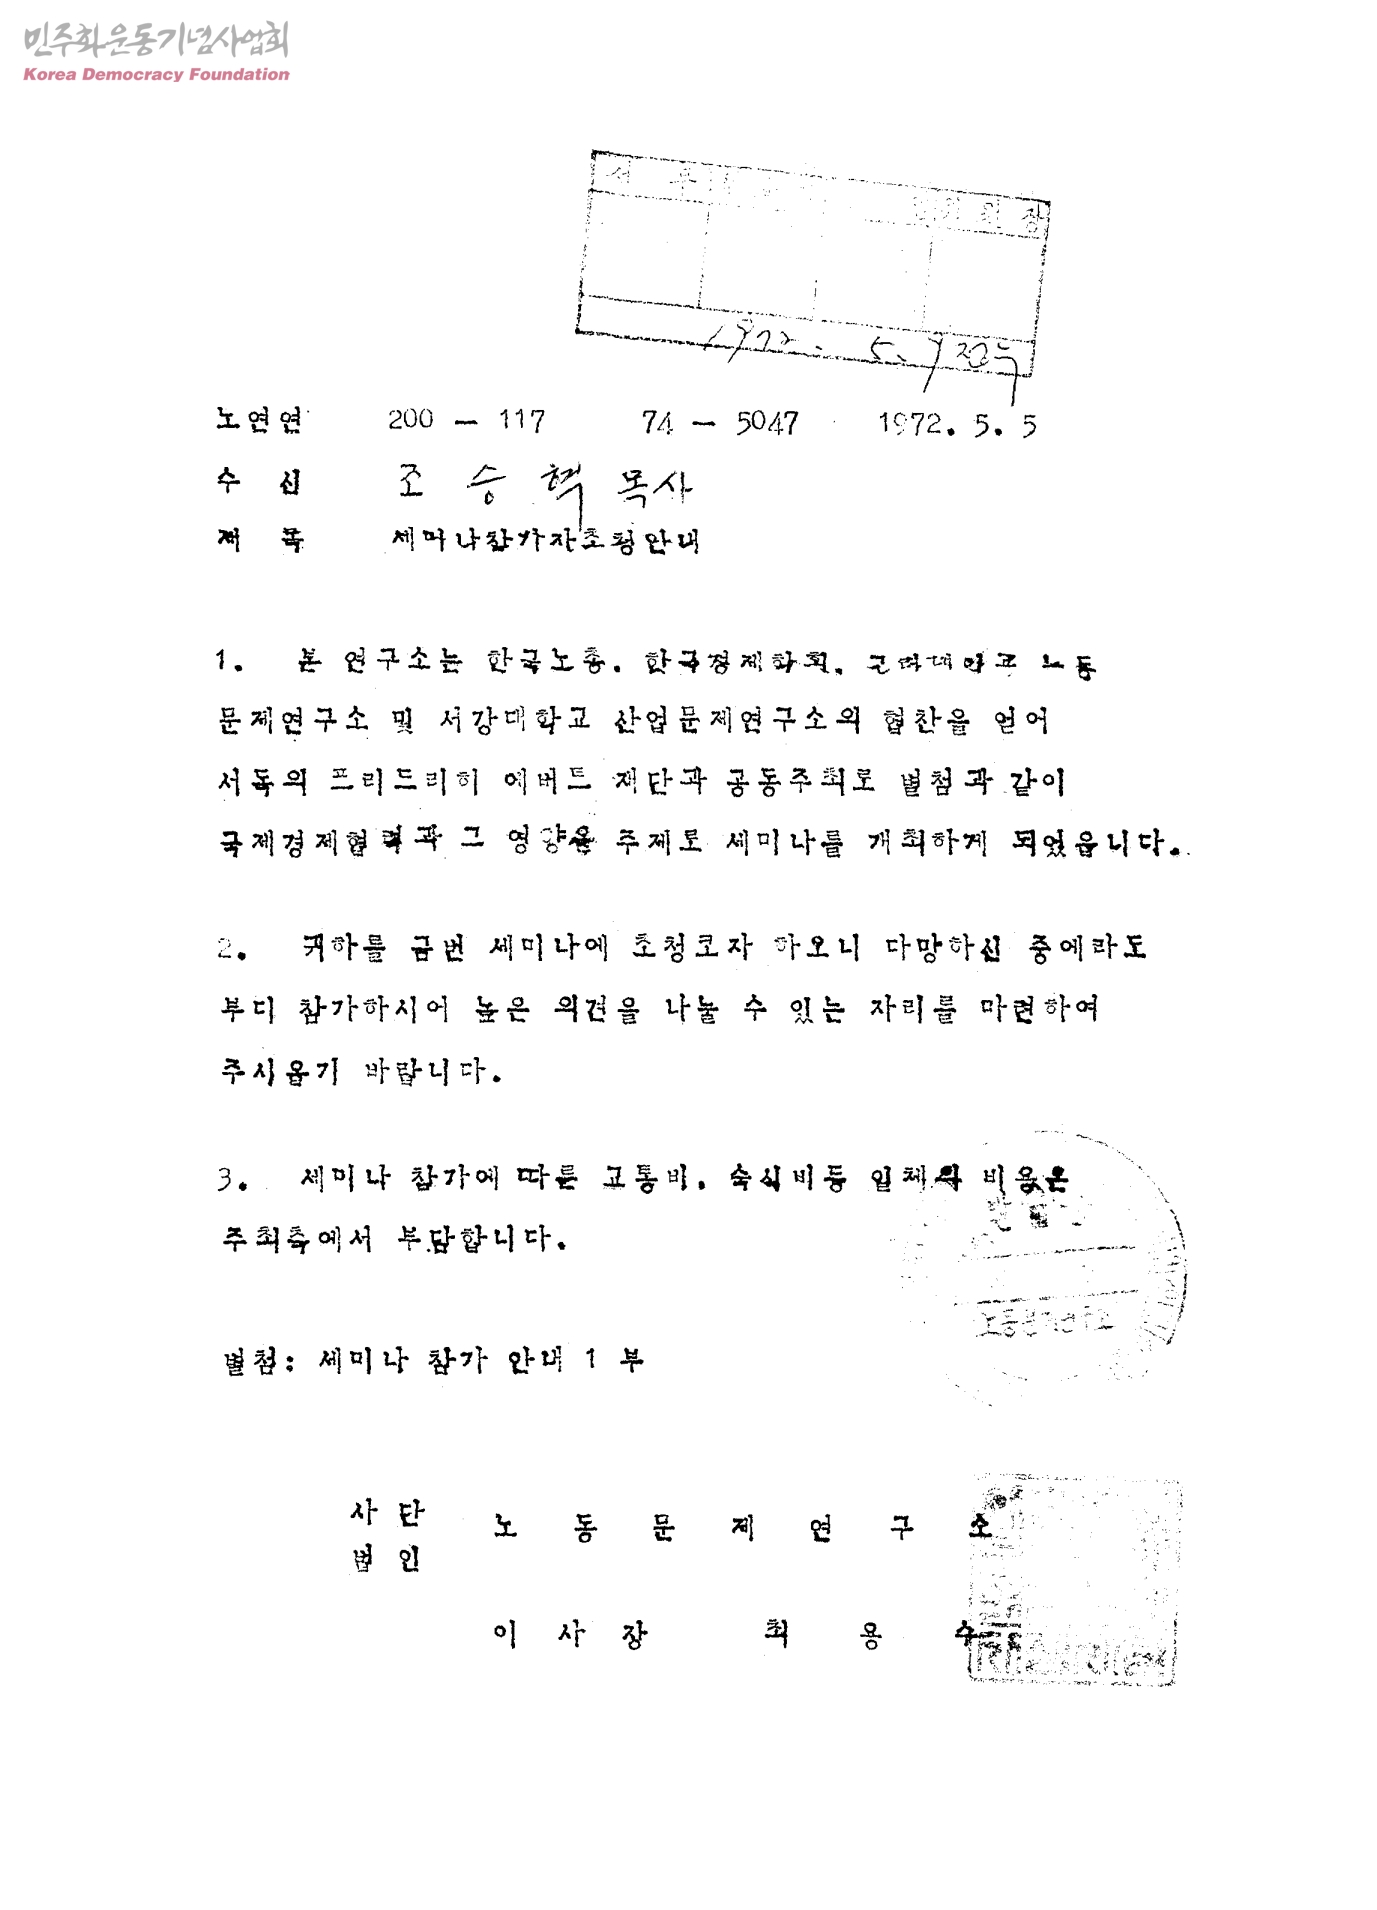 민주화운동기념사업회
Korea Democracy Foundation
위원장
1972. 5. 9 접수
노연연 200 - 117 74 - 5047 1972. 5. 5
수 신 조 승 혁 목사
제 목 세미나참가자초청안내
1. 본 연구소는 한국노총. 한국경제학회. 고려대학교 노동
문제연구소 및 서강대학교 산업문제연구소의 협찬을 얻어
서독의 프리드리히 에버트 재단과 공동주최로 별첨과 같이
국제경제협력과 그 영향을 주제로 세미나를 개최하게 되었읍니다.
2. 귀하를 금번 세미나에 초청코자 하오니 다망하신 중에라도
부디 참가하시어 높은 의견을 나눌 수 있는 자리를 마련하여
주시옵기 바랍니다.
3. 세미나 참가에 따른 교통비. 숙식비등 일체의 비용은
주최측에서 부담합니다.
노동문제연구소
별첨: 세미나 참가 안내 1 부
사단
법인 노 동 문 제 연 구 소
이 사 장 최 용 수